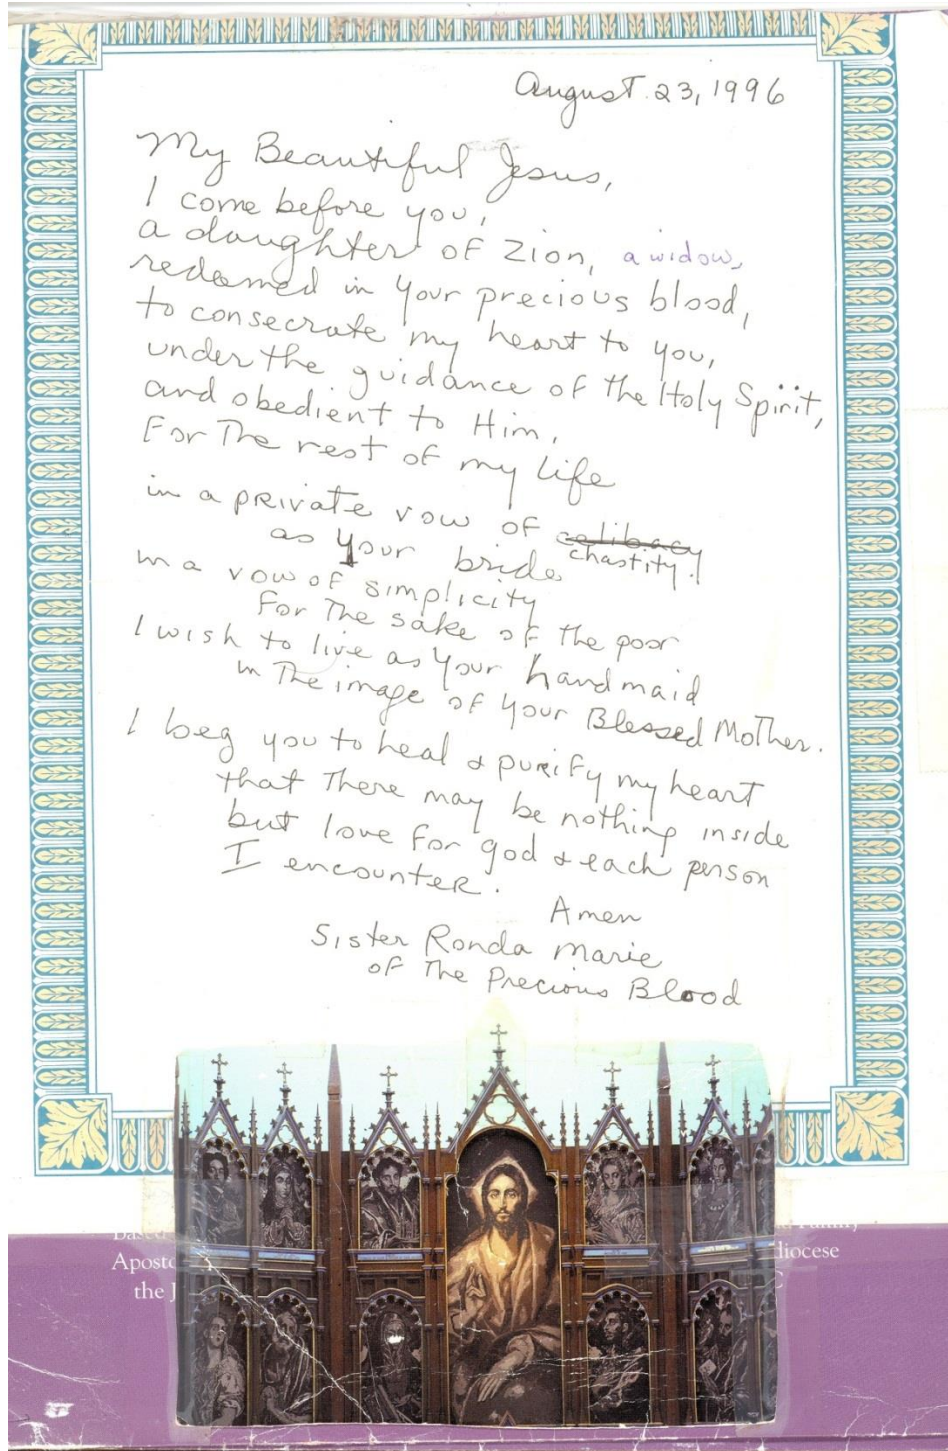 August 23, 1996
My Beautiful Jesus,
I come before you,
a daughter of Zion, a widow,
redeemed in your precious blood,
to consecrate my heart to you,
under the guidance of the Holy Spirit,
and obedient to Him,
For The rest of my life
in a private vow of celibacy
chastity.
as Your bride
in a vow of simplicity
For The sake of the poor
I wish to live as Your handmaid
in The image of your Blessed Mother.
I beg you to heal & purify my heart
that There may be nothing inside
but love for god & each person
I encounter.
Amen
Sister Ronda Marie
of The Precious Blood
diocese
the